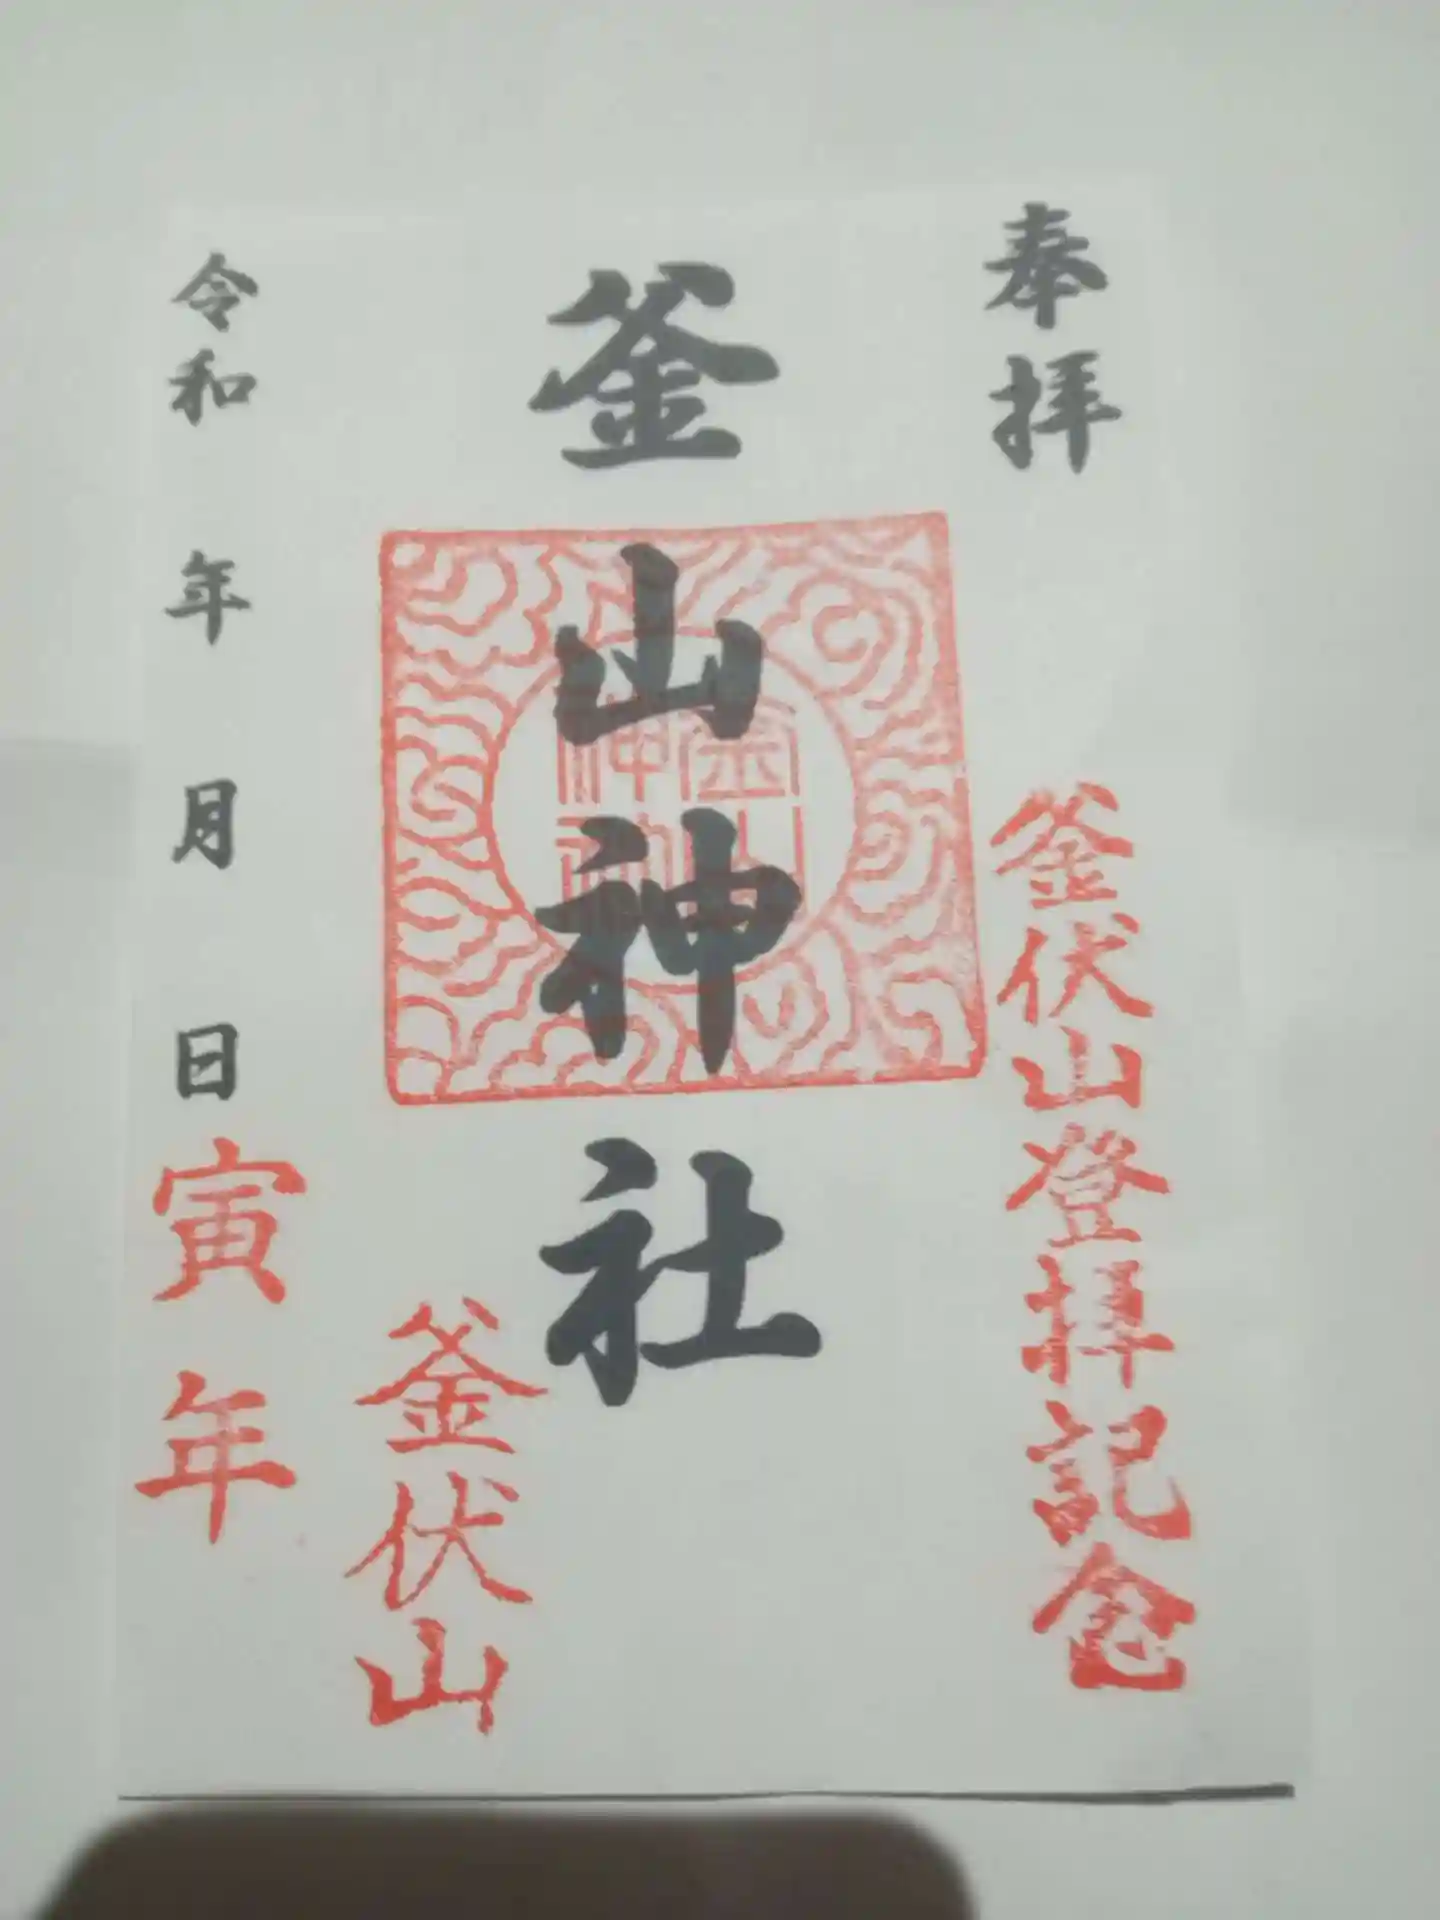 奉拝
釜伏山登拝記念
釜山神社
釜山
神社
釜伏山
令和 年 月 日
寅年